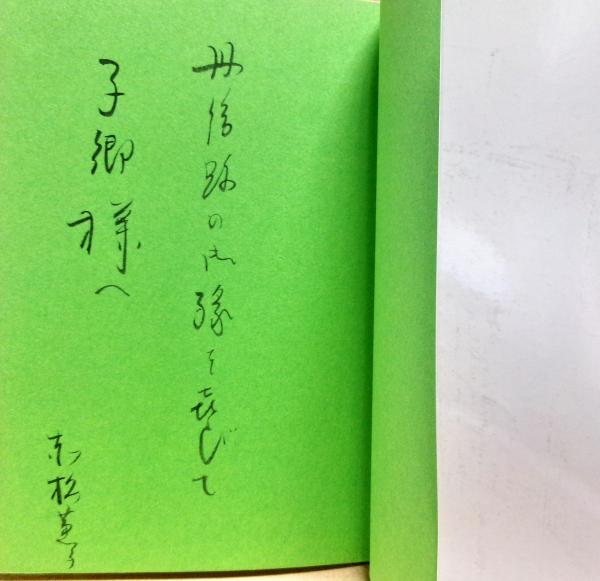 丹後路の御縁を喜びて
子郷様へ
赤松蕙子